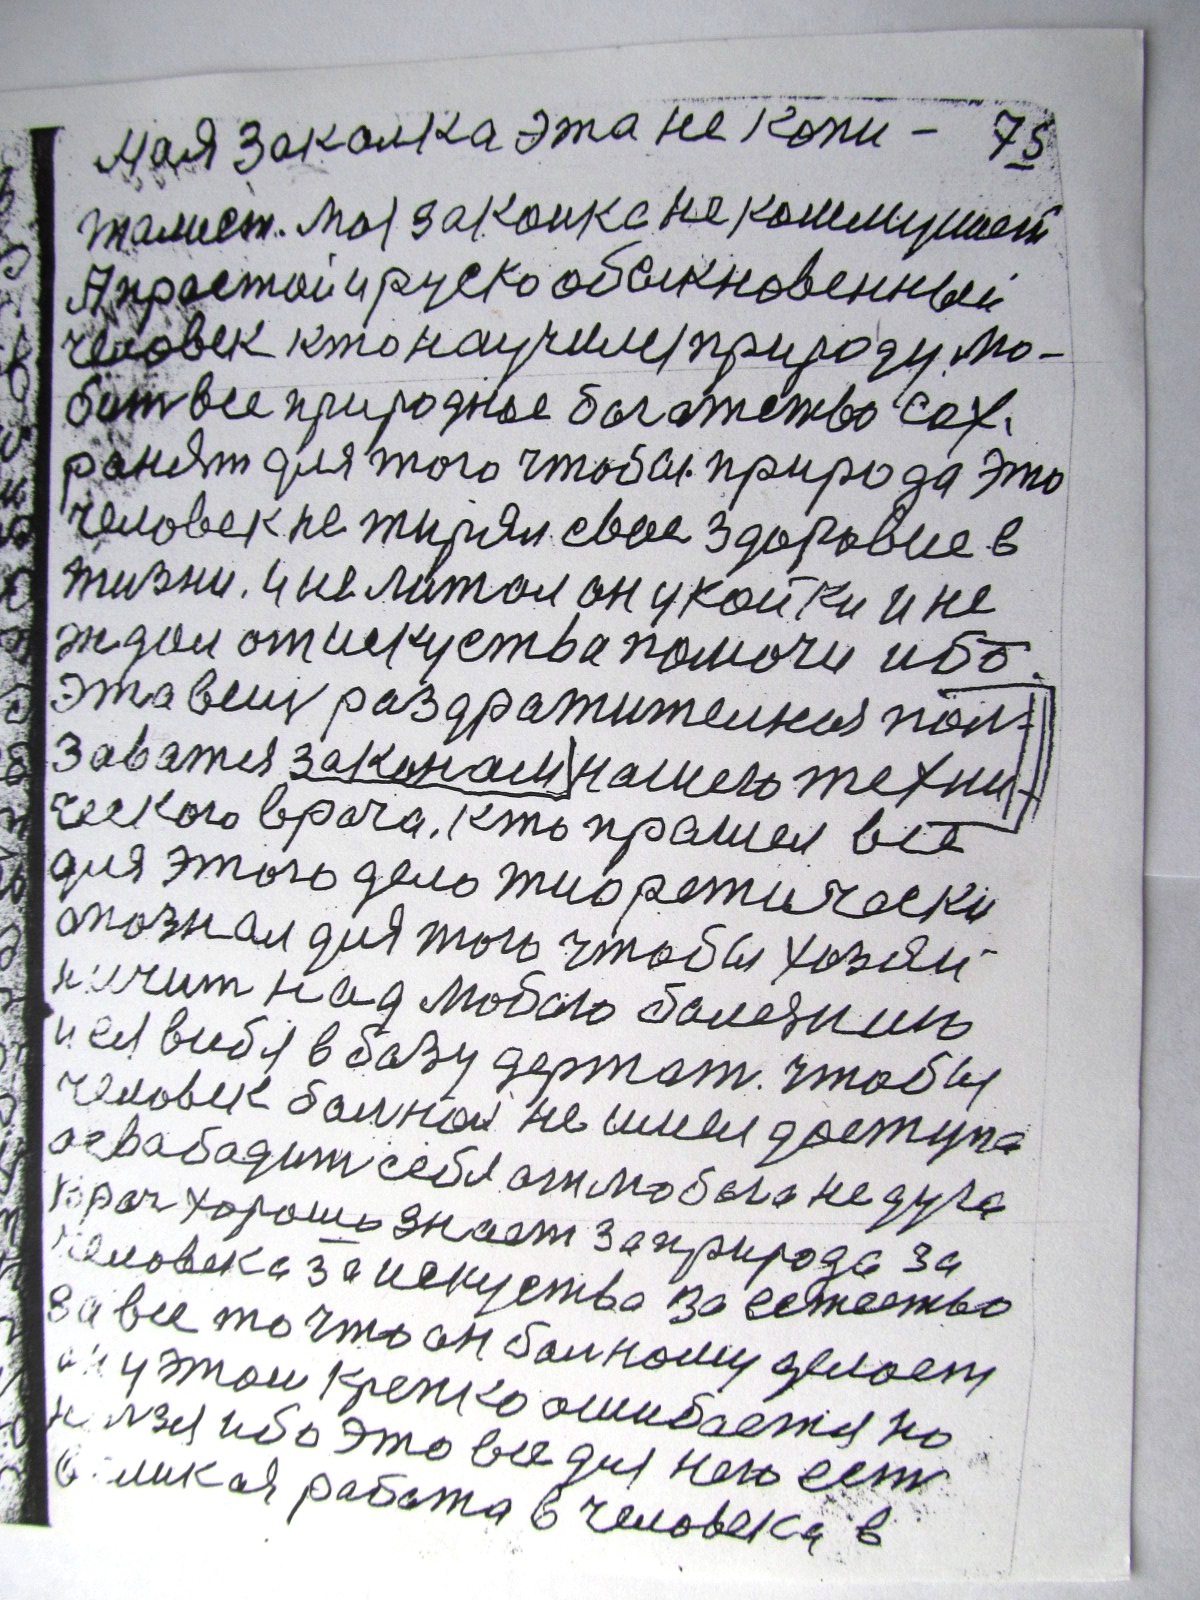 Мая Закалка эта не копи – 75
талист. Моя закалка не коммунист
А простой и руско обыкновенный
человек кто научился природу лю–
бит все природное богатство сох.
ранят для того чтобы природа это
человек не тирял свое здоровие в
жизни. и не литал он у койки и не
ждал от искуства помочи ибо.
эта вещ раздражителная пол–
заватся законам нашего техни–
ческого врача. кто прашел все
для этого дело тиоретически
опознал для того чтобы хозяй–
ничит над любого болезнию
и ея в себя в базу держат. чтобы
человек болной не имел доступа
освабадит себя от любога недуга
Врач хорошо знает за природа за
человека за искуства за естество
за все то что он болному делает
он у этом крепко ошибается но
нелзя ибо это все для него ест
великая работа в человека в